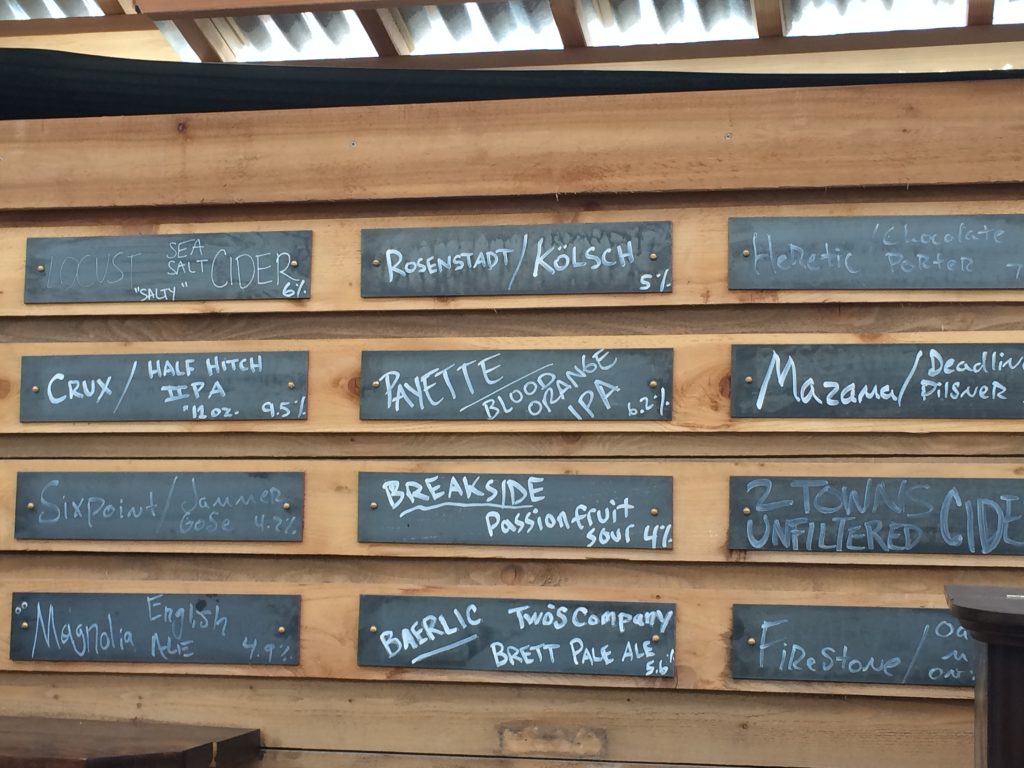 LOCUST SEA SALT CIDER
"SALTY" 6%
ROSENSTADT/KÖLSCH
5%
Heretic/Chocolate
Porter
CRUX/HALF HITCH
IIPA
"12oz. 9.5%
PAYETTE
BLOOD ORANGE
IPA 6.2%
Mazama/Deadlin
Pilsner
Sixpoint/Jammer
Gose 4.2%
BREAKSIDE
Passionfruit
sour 4%
2 TOWNS
UNFILTERED CIDE
Magnolia English
ALE 4.9%
BAERLIC Two's Company
BRETT PALE ALE
5.6%
FiReStone/